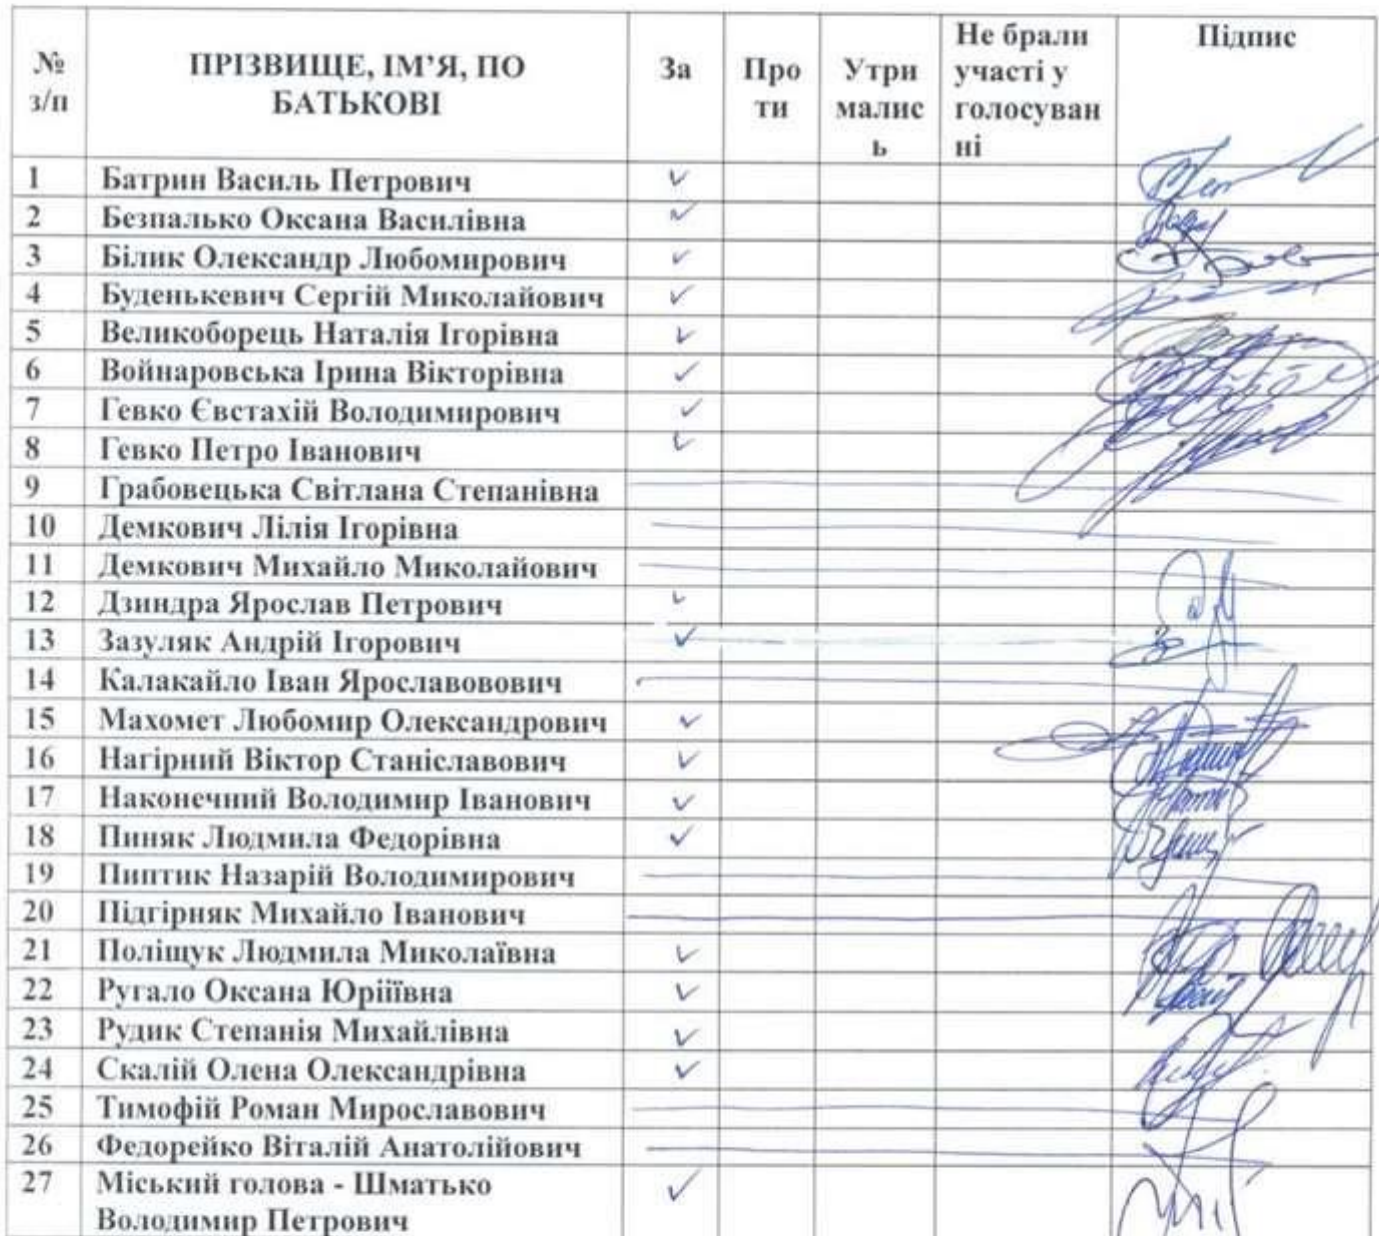 № з/п ПРІЗВИЩЕ, ІМ’Я, ПО БАТЬКОВІ За Про ти Утри малис ь Не брали участі у голосуван ні Підпис
1 Батрин Василь Петрович ✓
2 Безпалько Оксана Василівна ✓
3 Білик Олександр Любомирович ✓
4 Буденькевич Сергій Миколайович ✓
5 Великоборець Наталія Ігорівна ✓
6 Войнаровська Ірина Вікторівна ✓
7 Гевко Євстахій Володимирович ✓
8 Гевко Петро Іванович ✓
9 Грабовецька Світлана Степанівна
10 Демкович Лілія Ігорівна
11 Демкович Михайло Миколайович
12 Дзиндра Ярослав Петрович ✓
13 Зазуляк Андрій Ігорович ✓
14 Калакайло Іван Ярославовович
15 Махомет Любомир Олександрович ✓
16 Нагірний Віктор Станіславович ✓
17 Наконечний Володимир Іванович ✓
18 Пиняк Людмила Федорівна ✓
19 Пиптик Назарій Володимирович
20 Підгірняк Михайло Іванович
21 Поліщук Людмила Миколаївна ✓
22 Ругало Оксана Юріїївна ✓
23 Рудик Степанія Михайлівна ✓
24 Скалій Олена Олександрівна ✓
25 Тимофій Роман Мирославович
26 Федорейко Віталій Анатолійович
27 Міський голова - Шматько ✓
Володимир Петрович